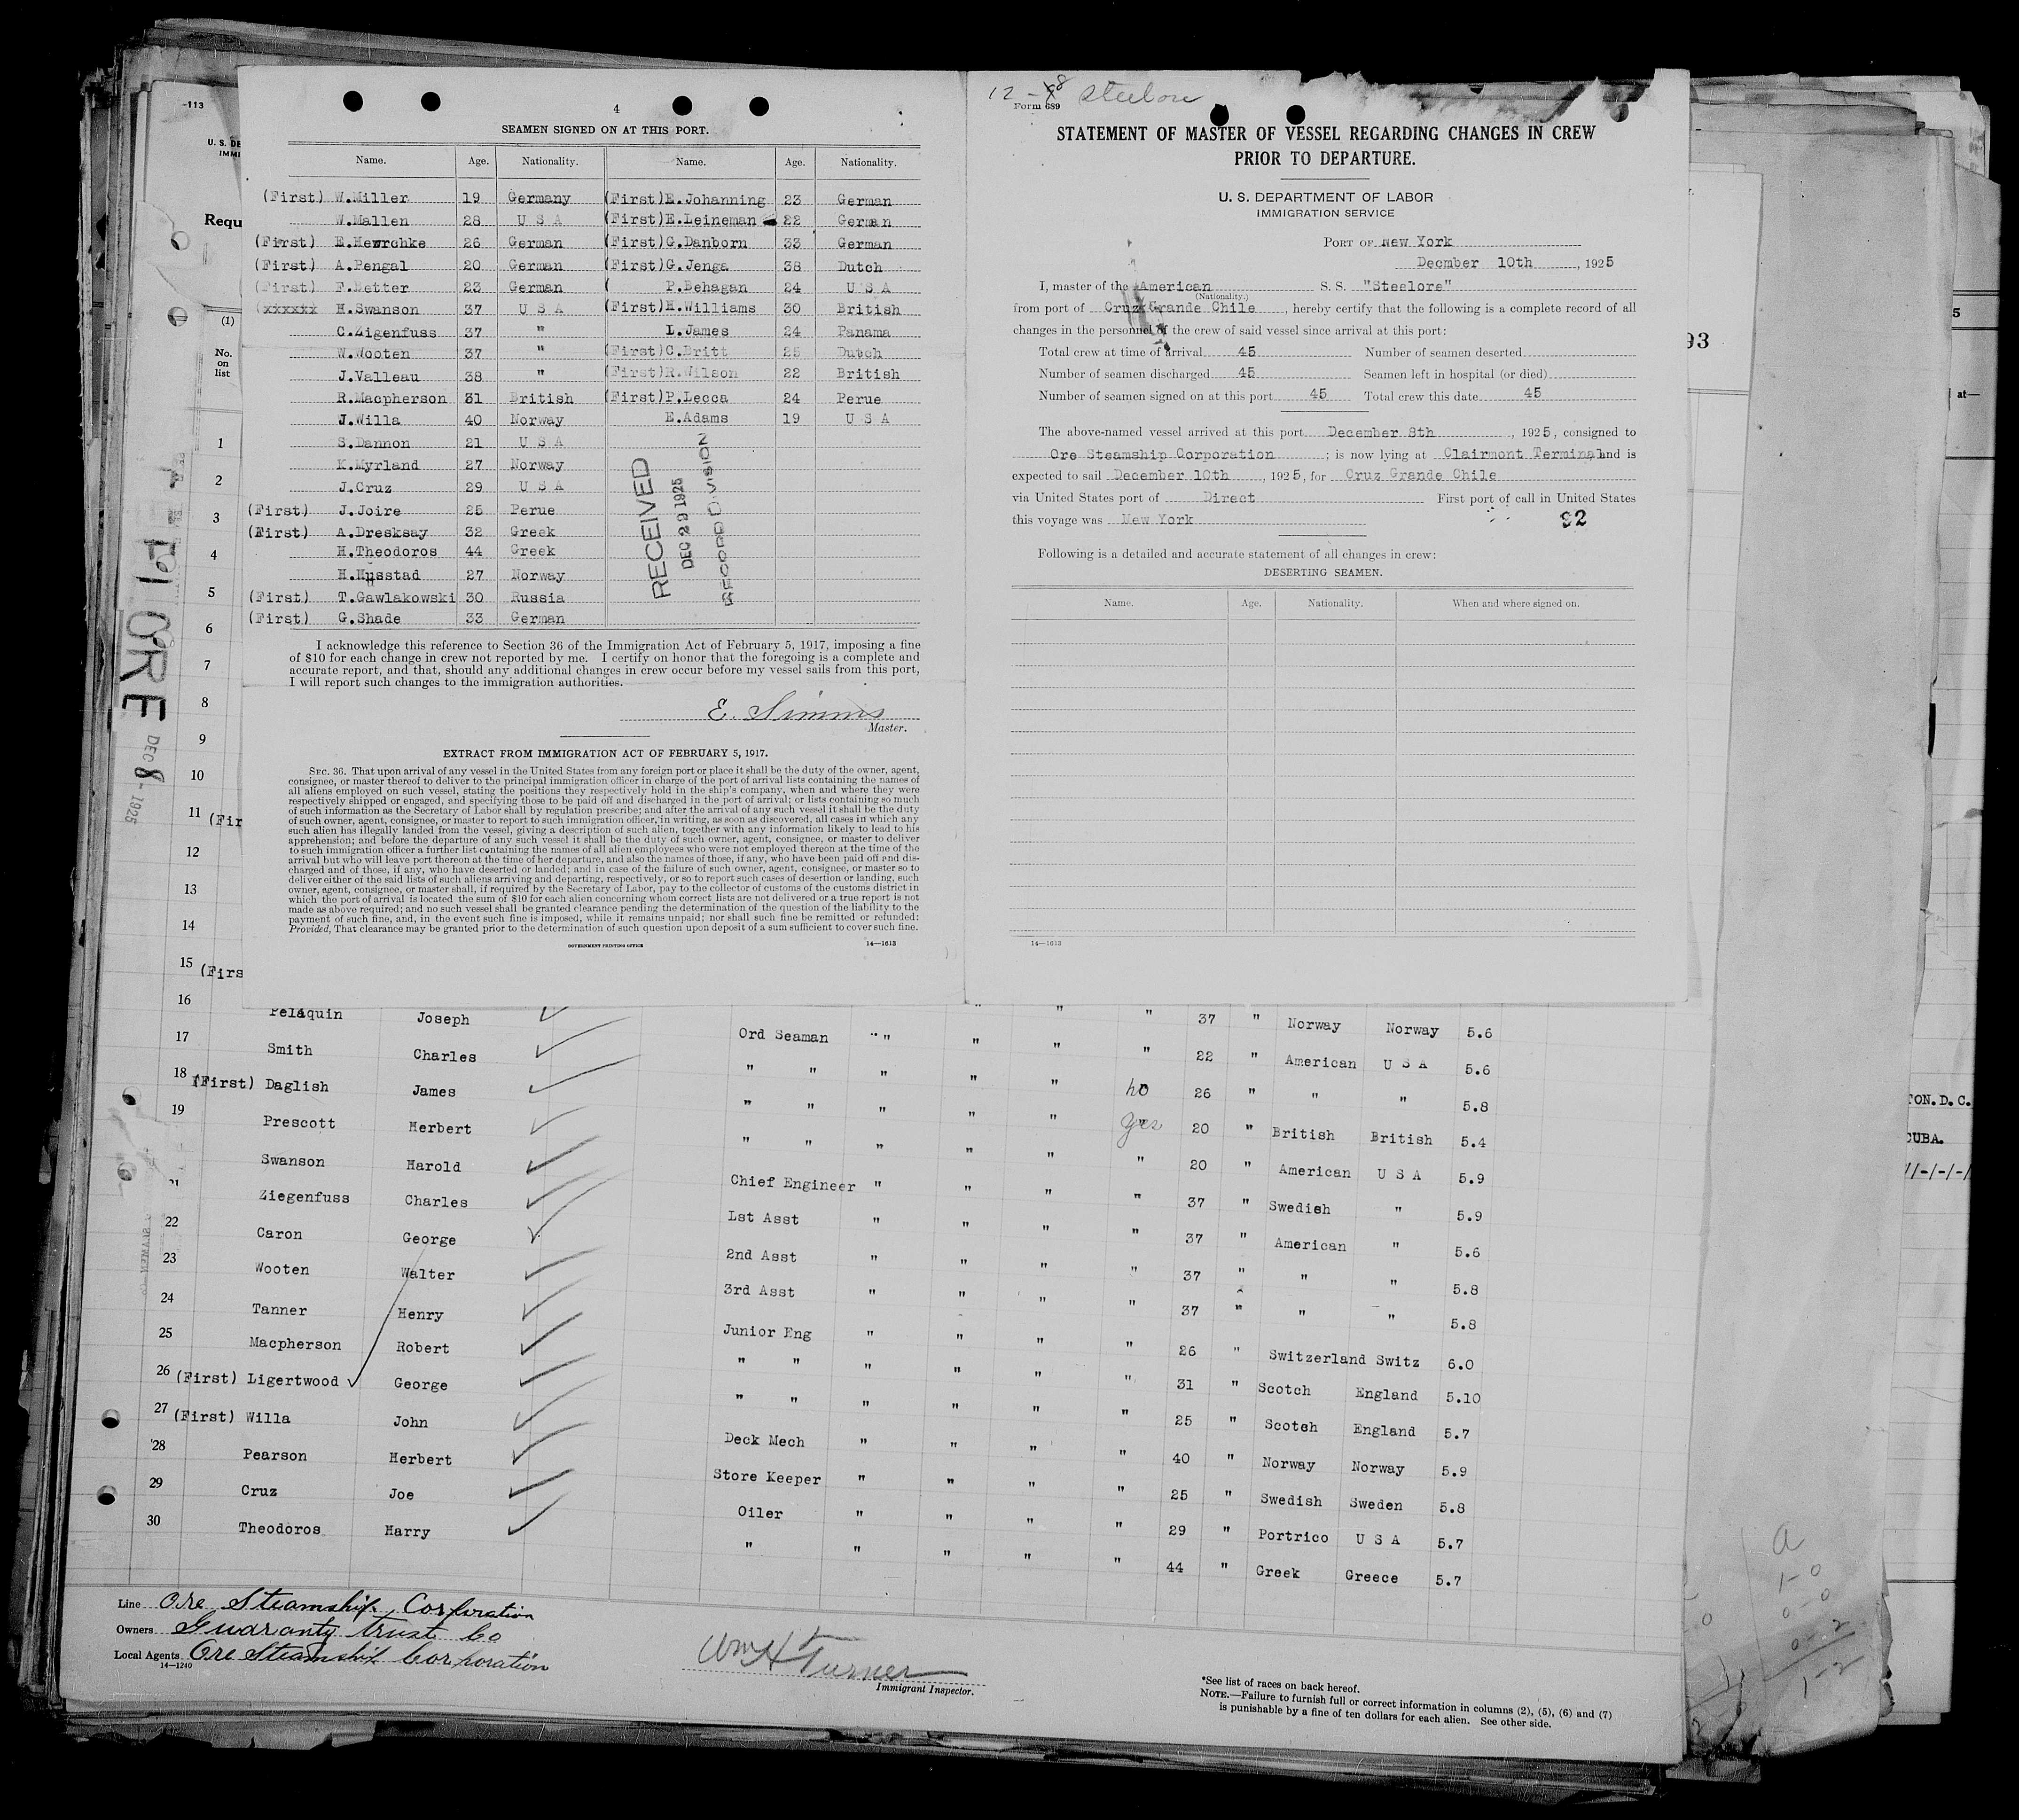 4
SEAMEN SIGNED ON AT THIS PORT.
Name. Age. Nationality. Name. Age. Nationality.
(First) W.Miller 19 Germany (First)E.Johanning 23 German
W.Mallen 28 U S A (First)E.Leineman 22 German
(First) 26 German (First)G.Danborn 33 German
(First) A.Pengal 20 German (First)G.Jenga 38 Dutch
(First) 23 German ( P.Behagan 24 U S A
(xxxxxx H.Swanson 37 U S A (First)H.Williams 30 British
C.Zigenfuss 37 " L.James 24 Panama
W.Wooten 37 " (First)C.Britt 25 Dutch
J.Valleau 38 " (First)R.Wilson 22 British
R.Macpherson 31 British (First)P.Lecca 24 Perue
J.Willa 40 Norway E.Adams 19 U S A
S.Dannon 21 U S A
K.Myrland 27 Norway
J.Cruz 29 U S A
(First) J.Joire 25 Perue
(First) A.Dresksay 32 Greek
H.Theodoros 44 Greek
H.Husstad 27 Norway
(First) T.Gawlakowski 30 Russia
(First) G.Shade 33 German
RECEIVED
DEC 29 1925
RECORD DIVISION
I acknowledge this reference to Section 36 of the Immigration Act of February 5, 1917, imposing a fine
of $10 for each change in crew not reported by me. I certify on honor that the foregoing is a complete and
accurate report, and that, should any additional changes in crew occur before my vessel sails from this port,
I will report such changes to the immigration authorities.
E. Simms
Master.
EXTRACT FROM IMMIGRATION ACT OF FEBRUARY 5, 1917.
SEC. 36. That upon arrival of any vessel in the United States from any foreign port or place it shall be the duty of the owner, agent,
consignee, or master thereof to deliver to the principal immigration officer in charge of the port of arrival lists containing the names of
all aliens employed on such vessel, stating the positions they respectively hold in the ship's company, when and where they were
respectively shipped or engaged, and specifying those to be paid off and discharged in the port of arrival; or lists containing so much
of such information as the Secretary of Labor shall by regulation prescribe; and after the arrival of any such vessel it shall be the duty
of such owner, agent, consignee, or master to report to such immigration officer, in writing, as soon as discovered, all cases in which any
such alien has illegally landed from the vessel, giving a description of such alien, together with any information likely to lead to his
apprehension; and before the departure of any such vessel it shall be the duty of such owner, agent, consignee, or master to deliver
to such immigration officer a further list containing the names of all alien employees who were not employed thereon at the time of the
arrival but who will leave port thereon at the time of her departure, and also the names of those, if any, who have been paid off and dis-
charged and of those, if any, who have deserted or landed; and in case of the failure of such owner, agent, consignee, or master so to
deliver either of the said lists of such aliens arriving and departing, respectively, or so to report such cases of desertion or landing, such
owner, agent, consignee, or master shall, if required by the Secretary of Labor, pay to the collector of customs of the customs district in
which the port of arrival is located the sum of $10 for each alien concerning whom correct lists are not delivered or a true report is not
made as above required; and no such vessel shall be granted clearance pending the determination of the question of the liability to the
payment of such fine, and, in the event such fine is imposed, while it remains unpaid; nor shall such fine be remitted or refunded:
Provided, That clearance may be granted prior to the determination of such question upon deposit of a sum sufficient to cover such fine.
GOVERNMENT PRINTING OFFICE 14—1613
12 - 8 Steelore
Form 689
STATEMENT OF MASTER OF VESSEL REGARDING CHANGES IN CREW
PRIOR TO DEPARTURE.
U. S. DEPARTMENT OF LABOR
IMMIGRATION SERVICE
PORT OF New York
Decmber 10th, 1925
I, master of the American S. S. "Steelore"
(Nationality.)
from port of Cruz Grande Chile, hereby certify that the following is a complete record of all
changes in the personnel of the crew of said vessel since arrival at this port:
Total crew at time of arrival 45 Number of seamen deserted
Number of seamen discharged 45 Seamen left in hospital (or died)
Number of seamen signed on at this port 45 Total crew this date 45
The above-named vessel arrived at this port December 8th, 1925, consigned to
Ore Steamship Corporation; is now lying at Clairmont Terminal and is
expected to sail December 10th, 1925, for Cruz Grande Chile
via United States port of Direct First port of call in United States
this voyage was New York 92
Following is a detailed and accurate statement of all changes in crew:
DESERTING SEAMEN.
Name. Age. Nationality. When and where signed on.
14—1613
-113
U. S. DE
IMMI
Requ
(1)
No.
on
list
1
2
3
4
5
6
7
8
9
10
11 (Fir
12
13
14
15 (Firs
16
ORE
DEC 8 - 1925
93
5
at—
TON. D. C.
CUBA.
//-/-/-/
Pelaquin Joseph " " 37 " Norway Norway 5.6
17 Smith Charles Ord Seaman " " " " 22 " American U S A 5.6
18 (First) Daglish James " " " " " no 26 " " " 5.8
19 Prescott Herbert " " " " " yes 20 " British British 5.4
Swanson Harold " " " " " " 20 " American U S A 5.9
21 Ziegenfuss Charles Chief Engineer " " " " 37 " Swedish " 5.9
22 Caron George 1st Asst " " " " 37 " American " 5.6
23 Wooten Walter 2nd Asst " " " " 37 " " " 5.8
24 Tanner Henry 3rd Asst " " " " 37 " " " 5.8
25 Macpherson Robert Junior Eng " " " " 26 " Switzerland Switz 6.0
26 (First) Ligertwood George " " " " " " 31 " Scotch England 5.10
27 (First) Willa John " " " " " " 25 " Scotch England 5.7
28 Pearson Herbert Deck Mech " " " " 40 " Norway Norway 5.9
29 Cruz Joe Store Keeper " " " " 25 " Swedish Sweden 5.8
30 Theodoros Harry Oiler " " " " 29 " Portrico U S A 5.7
" " " " " 44 " Greek Greece 5.7
Line Ore Steamship Corporation
Owners Guaranty Trust Co
Local Agents Ore Steamship Corporation
14—1240
Wm H Turner
Immigrant Inspector.
*See list of races on back hereof.
NOTE.—Failure to furnish full or correct information in columns (2), (5), (6) and (7)
is punishable by a fine of ten dollars for each alien. See other side.
a
1-0
0-0
0-2
1-2